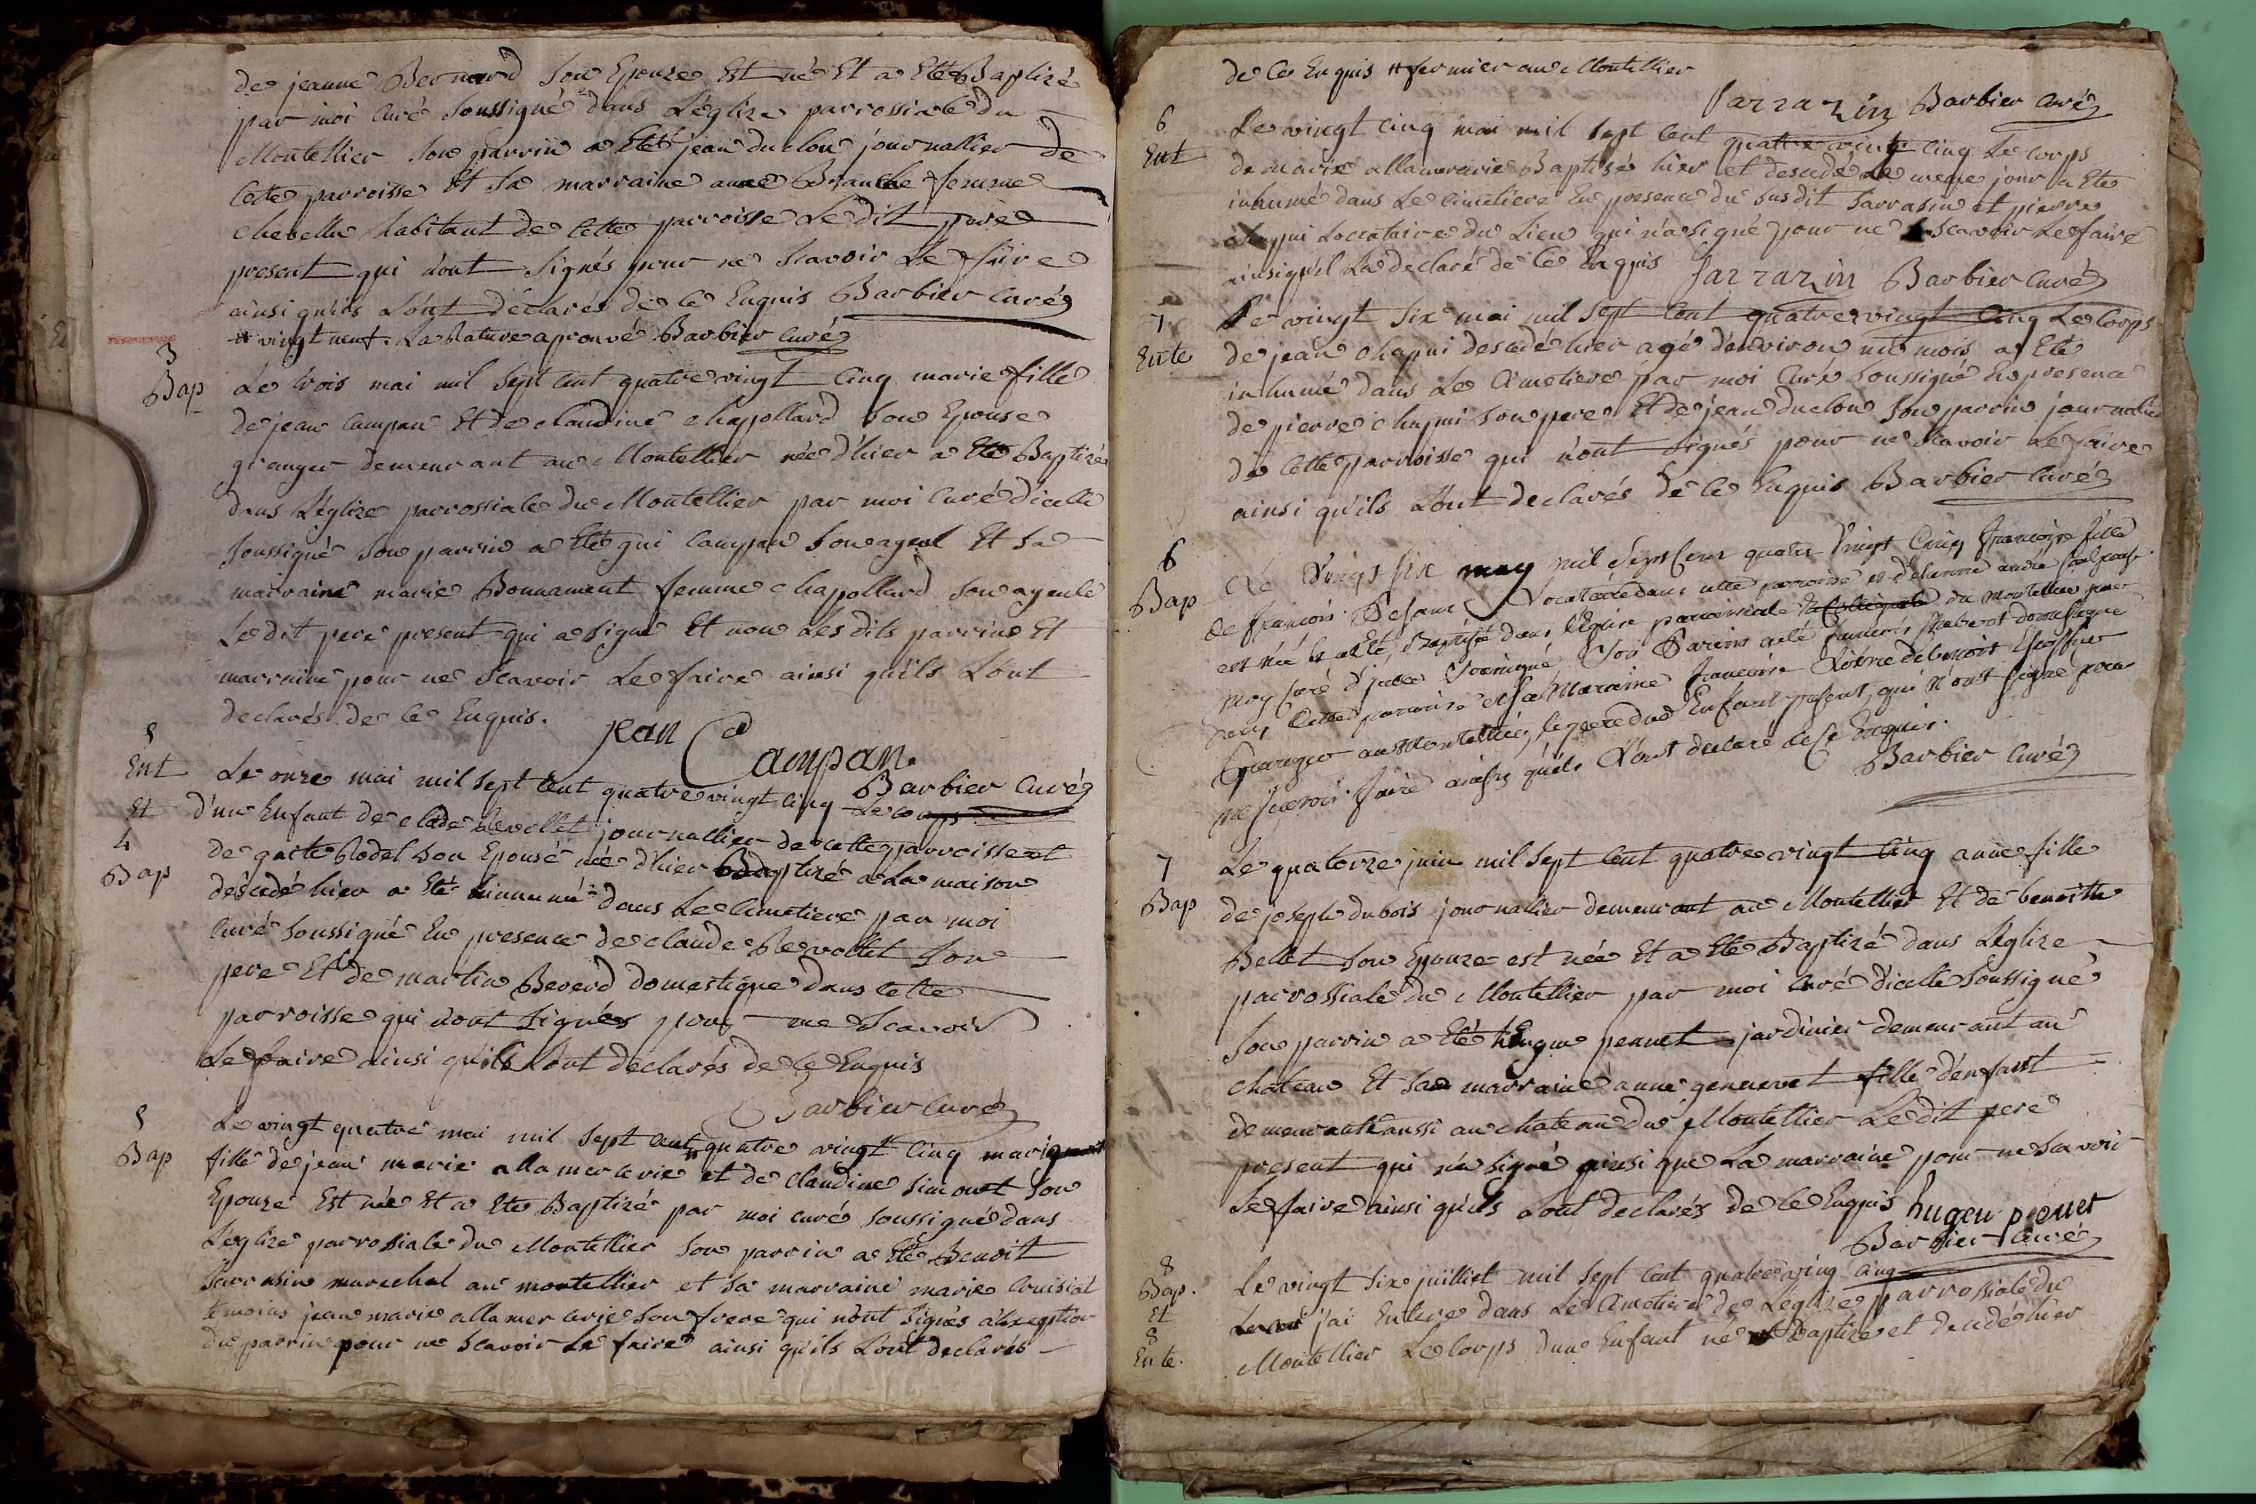 de jeanne Bernard Son Epouze Est né Et a Eté Baptizé
par moi Curé Soussigné dans L'eglize parrossiale du
Montellier Son parrin a Eté jean duclou journallier de
Cette parroisse Et Sa marraine anne Branche femme
chevellu habitant de Cette parroisse Le dit pere
present qui n'ont Signés pour ne Scavoir Le faire
ainsi qu'ils L'ont déclarés de ce Enquis Barbier Curé
# vingt neuf. La Rature aprouvé Barbier Curé
3
Bap
Le trois mai mil Sept Cent quatre vingt Cinq marie fille
de jean Campan Et de claudine chapollard Son Epouse
granger demeurant au Montellier née d'hier a Eté Baptizée
dans L'églize parrossiale du Montellier par moi Curé d'icelle
Soussigné Son parrin a Eté gui Campan Son ayeul Et Sa
marraine marie Bonnament femme chapollard Son ayeule
Le dit pere present qui a signé Et non Les dits parrins Et
marraine pour ne Scavoir Le faire ainsi qu'ils L'ont
declarés de ce Enquis. jean Campan
Barbier Curé
5
Ent
Et
4
Bap
Le onze mai mil Sept Cent quatre vingt Cinq Le corps
d'un Enfant de clade Revollet journallier de cette parroisse et
de Rodet Son Epouse née d'hier Baptizé a La maison
désédé hier a Eté dans Le Cimetiere par moi
Curé Soussigné En presence de claude Revollet Son
pere Et de martin Beverd domestique dans cette
parroisse qui n'ont Signés pour ne Scavoir
Le faire ainsi qu'ils L'ont declarés de ce Enquis
Barbier Curé
5
Bap
Le vingt quatre mai mil Sept Cent quatre vingt Cinq marie
fille de jean marie allamercerie et de claudine Simonet Son
Epouze Est née Et a Eté Baptizé par moi curé Soussigné dans
L'eglize parrossiale du Montellier Son parrin a Eté Benoit
Sarrasin marechal au montellier et Sa marraine marie Cruisiat
temoins jean marie allamercerie Son frere qui n'ont Signés a l'exeption
du parrin pour ne Scavoir Le faire ainsi qu'ils L'ont declarés
de Ce Enquis # fermier au Montellier
Sarrazin Barbier Curé
6
Ent
Le vingt Cinq mai mil Sept Cent quatre vingt Cinq Le Corps
de marie allamercerie Baptisé hier et desedé Le meme jour a Eté
inhumé dans Le Cimetiere En presence du Susdit Sarrasin et pierre
chapui Locataire du Lieu qui n'a signé pour ne Scavoir Le faire
ainsi qu'il L'a declaré de ce Enquis Sarrazin Barbier Curé
7
Ente
Le vingt Six mai mil Sept Cent quatre vingt Cinq Le Corps
de jean chapui desedé hier agé d'environ mois a Eté
inhumé dans Le Cimetiere par moi Curé Soussigné En presence
de pierre chapui Son pere Et de jean duclou Son parrin journalier
de Cette parroisse qui n'ont Signés pour ne Scavoir Le faire
ainsi qu'ils L'ont declarés de ce Enquis Barbier Curé
6
Bap
Le Vingt six may mil Sept Cent quatre Vingt Cinq francoise fille
de francois Locataire dans cette parroisse et d'etiennie
est née et a Eté Baptisée dans l'Eglise parroissiale du Montellier par
moy Curé d'icelle Soussigné Son Parrin a eté francois domestique
dans Cette parroisse et Sa Marraine francoise de benoit
Granger au Montellier, le pere dud Enfant present, qui N'ont signé pour
ne Scavoir faire ainsy qu'ils L'ont declaré de Ce Enquis.
Barbier Curé
7
Bap
Le quatorze juin mil Sept Cent quatre vingt Cinq anne fille
de joseph dubois journallier demeurant au Montellier Et de benoitte
Bellet Son Epouze est née Et a Eté Baptizé dans L'églize
parrossiale du Montellier par moi Curé d'icelle Soussigné
Son parrin a Eté hugue penet jardinier demeurant au
chateau Et Sa marraine anne genevet fille d'enfant
demeurante aussi au chateau du Montellier Le dit pere
present qui n'a signé ainsi que La marraine pour ne Scavoir
Le faire ainsi qu'ils L'ont declarés de ce Enquis hugeu penet
Barbier Curé
8
Bap.
Et
8
Ente.
Le vingt Six juilliet mil Sept Cent quatre ving Cinq
j'ai Enterre dans Le Cimetiere de Leglize parrossiale du
Montellier Le Corps d'une Enfant né Baptize et decedé hier